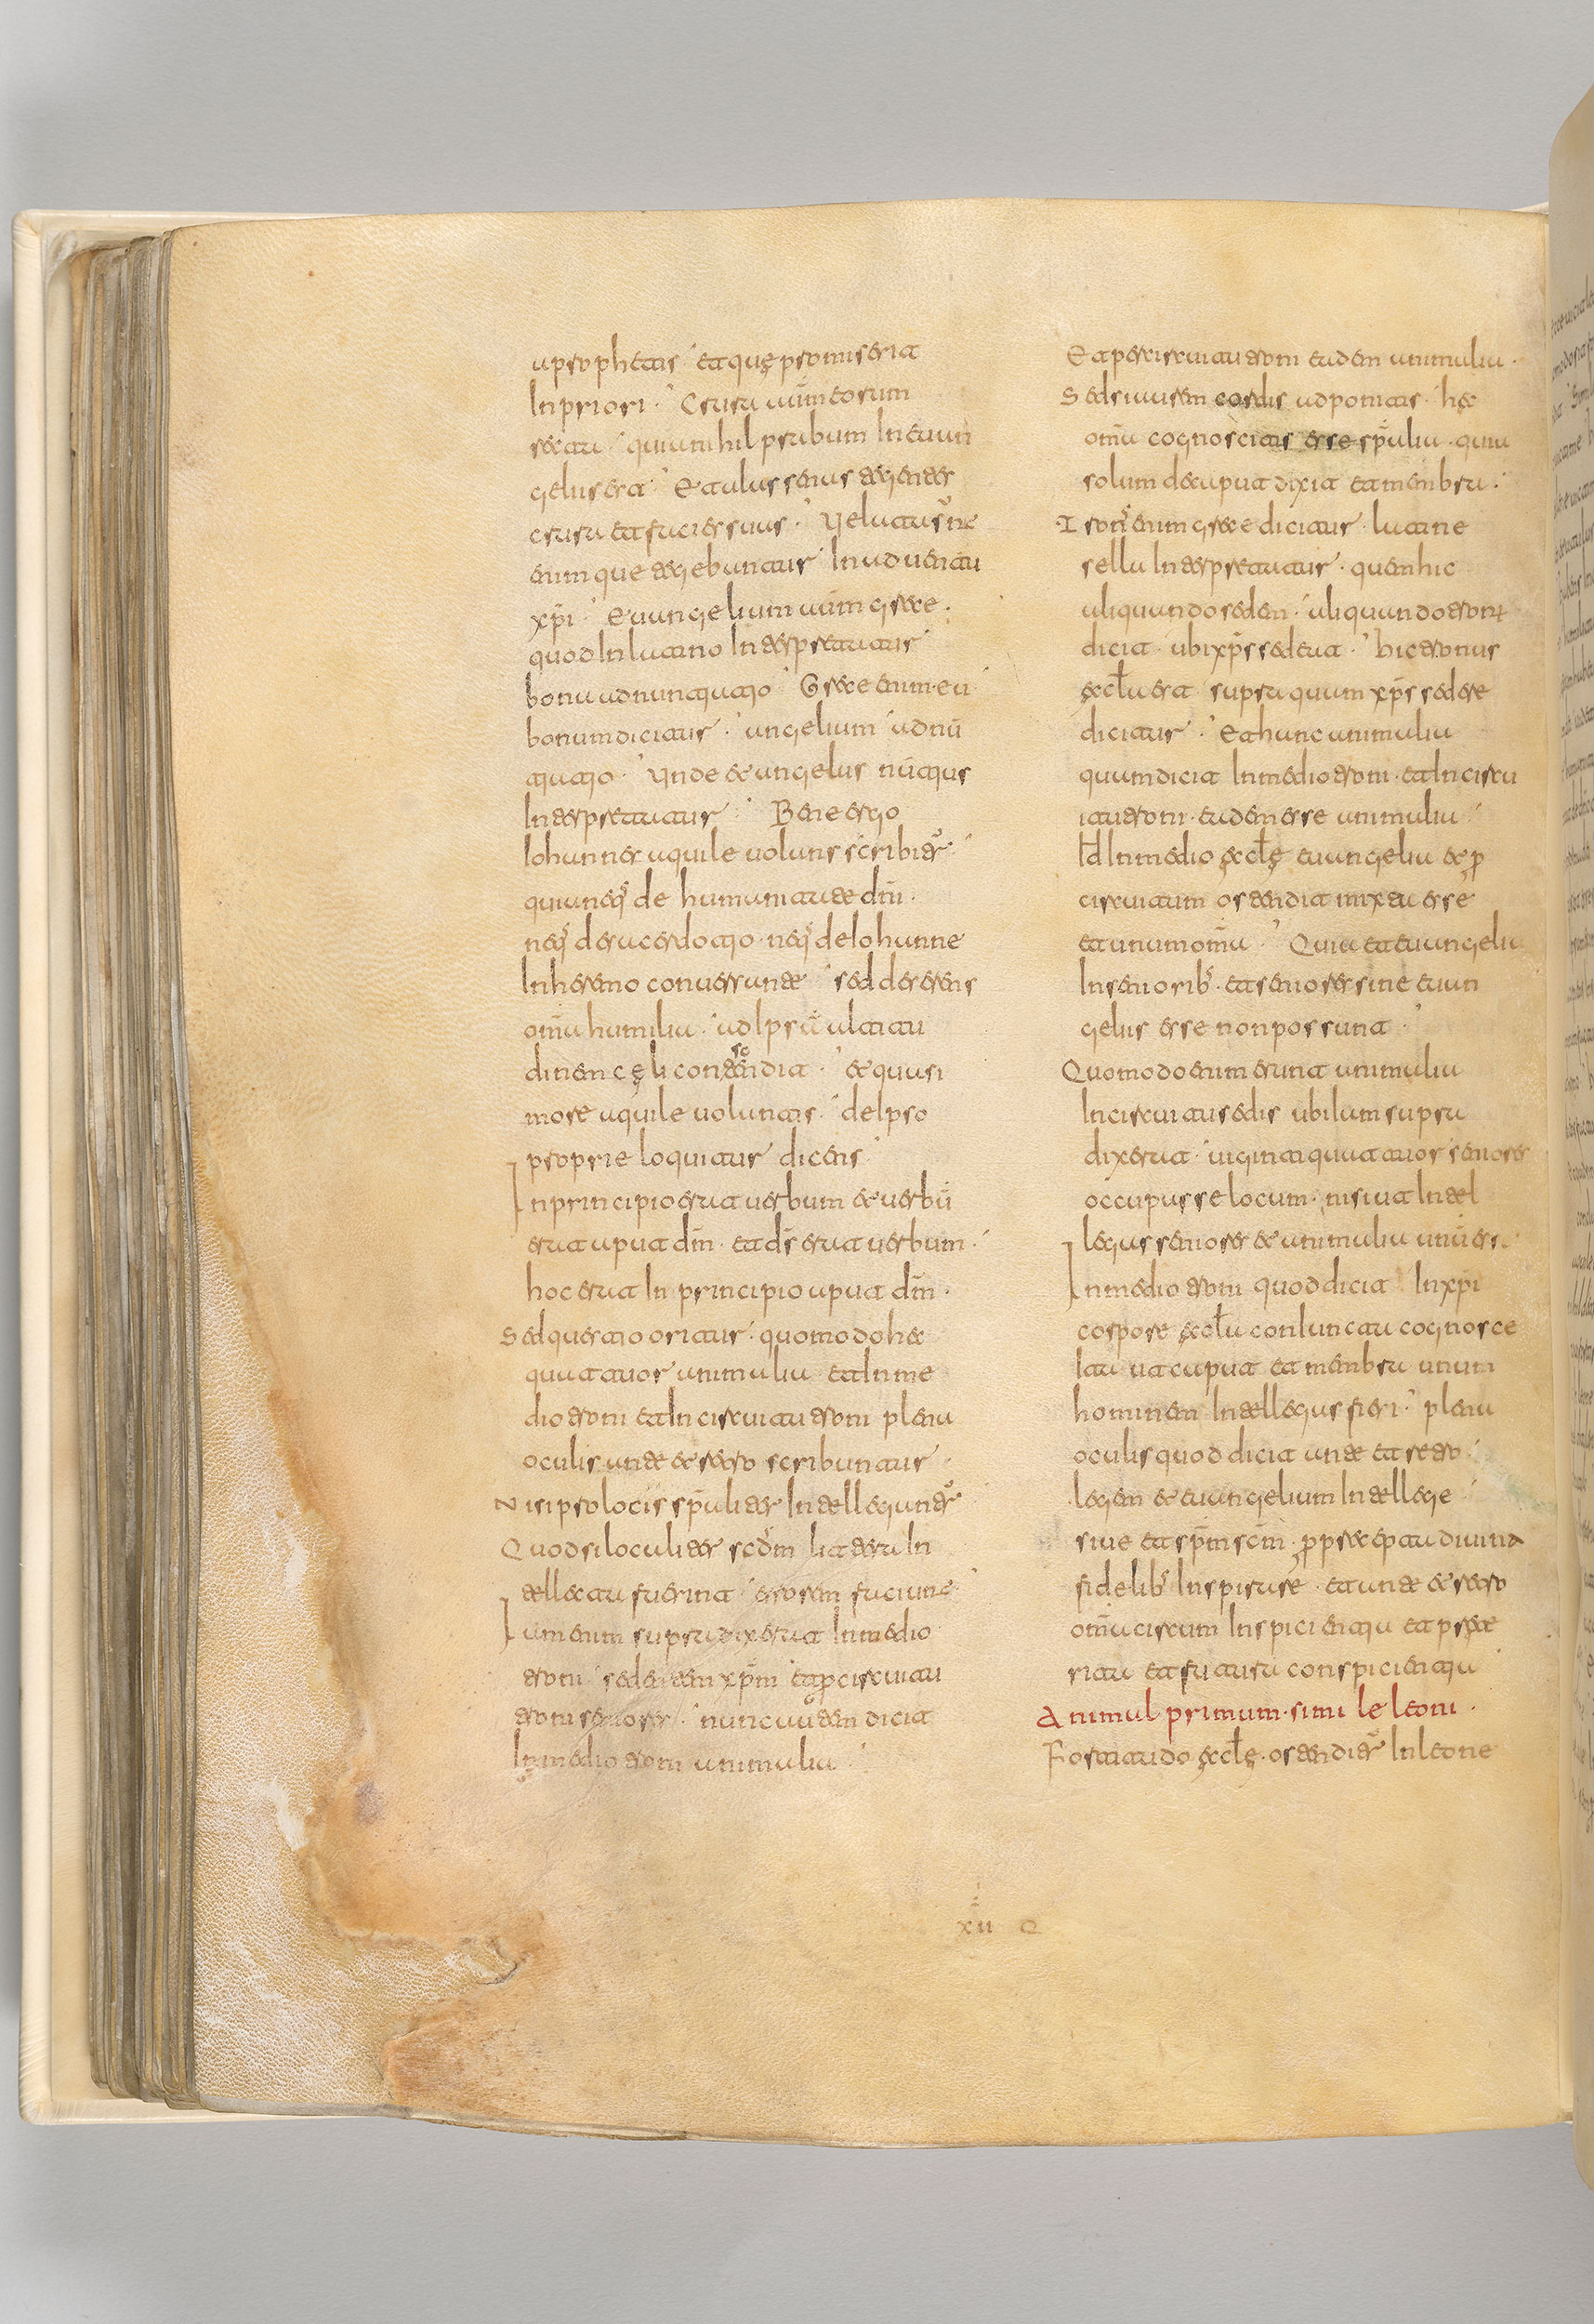 a prophetis et quę promiserit
In priori Crura uūm eorum
recta quia nihil prabum In euan
gelis est Et alas senas tegentes
crura et facies suas
enim que tegebantur In aduentu
xp̄i Euangelium uūm grece
quod In latino Interpretatur
bonu adnuntiatio Grece enim eu
bonum dicitur angelium adnū
tiatio Unde et angelus nūtius
Interpretatur Bene ergo
Iohannes aquile uolans scribitr̄
quia neq̄ de humanitate dn̄i
neq̄ de sacerdotio neq̄ de Iohanne
In heremo conuersante sed deserens
om̄a humilia ad Ipsā altitu
dinem cęli contendit et quasi
more aquile uolantis de Ipso
proprie loquitur dicens
In principio erat uerbum et uerbū
erat aput dm̄ et ds̄ erat uerbum
hoc erat In principio aput dm̄
Sed questio oritur quomodo hec
quattuor animalia et In me
dio troni et In circuitu troni plena
oculis ante et retro scribuntur
Nisi pro locis sp̄aliter Intellegantr̄
Quod si localiter scdm̄ littera In
tellecta fuerint errorem faciunt
Iam enim supra dixerat In medio
troni sedentem xp̄m et p circuitu
troni seniores nunc autem dicit
In medio troni animalia
Et per circuitu troni eadem animalia
Sed si aurem cordis adponitis hec
om̄a cognoscitis esse sp̄alia quia
solum de caput dixit et membra
Tron̄ enim grece dicitur latine
sella Interpretatur quem hic
aliquando sedem aliquando tront
dicit ubi xp̄s sedeat hic tronus
ęccl̄a est supra quam xp̄s sedere
dicitur Et hunc animalia
quum dicit In medio troni et In circu
itu troni eadem esse animalia
Id In medio ęccl̄ę euangelia et p
circuitum ostendit mixta esse
et unum om̄a Quia et euangelia
In seniorib̄ et seniores sine euan
gelis esse non possunt
Quomodo enim erunt animalia
In circuitu sedis ubi Iam supra
dixerat uiginti quattuor seniores
occupasse locum nisi ut Intel
legas seniores et animalia
In medio troni quod dicit In xp̄i
corpore ęccl̄a coniuncta cognosce
Ita ut caput et membra unum
hominem Intellegas fieri plena
oculis quod dicit ante et retro
legem et euangelium Intellege
siue et sp̄m scm̄ p precepta diuina
fidelib̄ Inspirare et ante et retro
om̄a circum Inspicientia et prete
rita et futura conspicientia
Animal primum simile leoni
Fortitudo ęccl̄ę ostenditr̄ In leone
xii Q